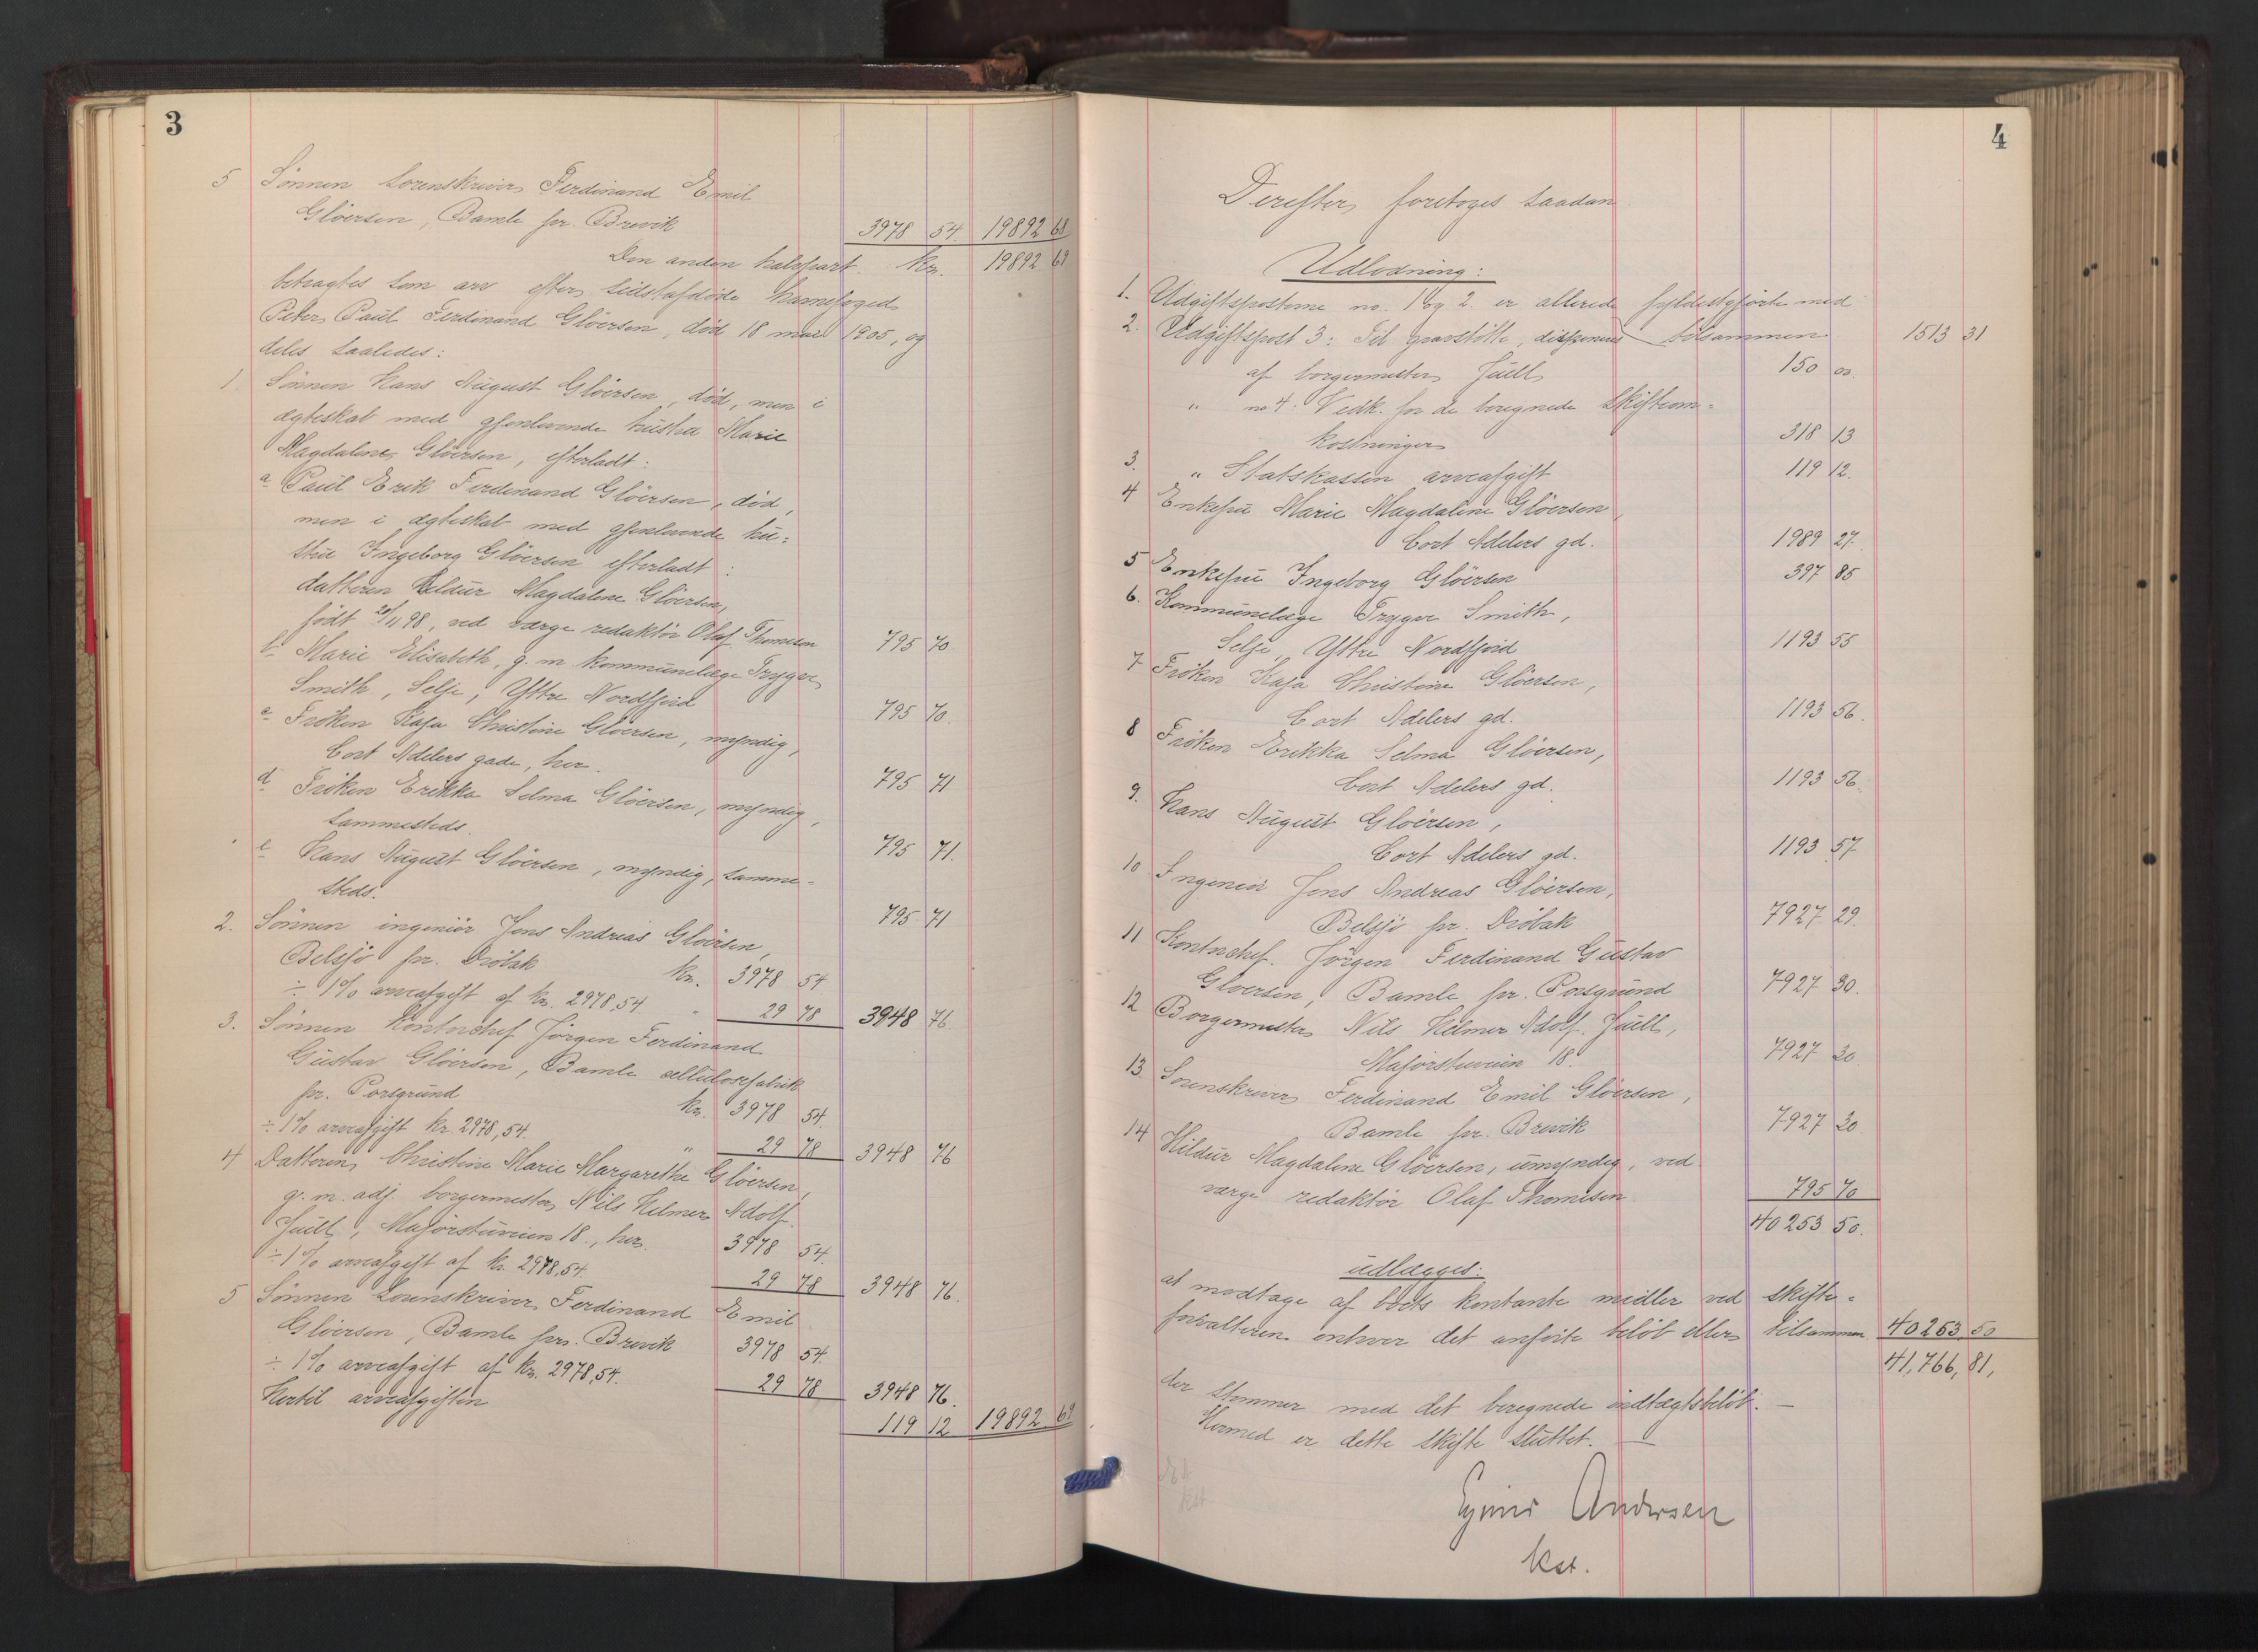 3
5 Sönnen Sorenskriver Ferdinand Emil
Glöersen, Bamle pr. Brevik 3978 54. 19892 68
Den anden halvpart. kr. 19892 69
betragtes som arv efter sidstafdöde kæmnefoged
Peter Paul Ferdinand Glöersen, död 18 mai 1905, og
deles saaledes:
1. Sönnen Hans August Glöersen, död, men i
ægteskab med gjenlevende hustru Marie
Magdalene Glöersen, efterladt:
a Paul Erik Ferdinand Glöersen, död,
men i ægteskab med gjenlevende hu=
stru Ingeborg Glöersen efterladt:
datteren Hildur Magdalene Glöersen,
født 20/11 98, ved værge redaktör Olaf Thomesen 795 70.
b. Marie Elisabeth, g. m. kommunelæge Trygve
Smith, Selje, Yttre Nordfjord 795 70.
c Fröken Kaja Christine Glöersen, myndig,
Cort Adelers gade, her. 795 71
d Fröken Erikka Selma Glöersen, myndig,
sammesteds. 795 71.
e Hans August Glöersen, myndig, samme-
steds. 795 71
2. Sönnen ingeniör Jens Andreas Glöersen,
Belsjö pr. Dröbak kr. 3978 54
÷ 1% arveafgift af kr. 2978,54. " 29 78 3948 76.
3. Sönnen Kontorchef Jörgen Ferdinand
Gustav Glöersen, Bamle cellulosefabrik
pr. Porsgrund kr. 3978 54.
÷ 1% arveafgift kr. 2978,54. " 29 78 3948 76
4 Datteren Christine Marie Margarethe Glöersen,
g. m. adj. borgermester Nils Helmer Adolf
Juell, Majorstuveien 18, her. 3978 54.
÷ 1% arveafgift af kr. 2978,54. 29 78 3948 76.
5 Sönnen Sorenskriver Ferdinand Emil
Glöersen, Bamle pr. Brevik 3978 54.
÷ 1% arveafgift af kr. 2978,54. 29 78 3948 76.
Hertil arveafgiften 119 12 19892 69
4
Derefter foretoges saadan
Udlodning:
1. Udgiftsposterne no. 1 og 2. er allerede fyldestgjorte med
tilsammen 1513 31
2. Udgiftspost 3: Til gravstötte, disponeres
af borgermester Juell 150 00.
" no 4. Vedk. for de beregnede Skifteom=
kostninger 318 13
3. " Statskassen arveafgift 119 12.
4 Enkefru Marie Magdalene Glöersen,
Cort Adelers gd. 1989 27.
5 Enkefru Ingeborg Glöersen 397 85
6. Kommunelæge Trygve Smith,
Selje, Yttre Nordfjord 1193 55
7 Fröken Kaja Christine Glöersen,
Cort Adelers gd. 1193 56.
8 Fröken Erikka Selma Glöersen,
Cort Adelers gd. 1193 56.
9. Hans August Glöersen,
Cort Adelers gd. 1193 57
10 Ingeniör Jens Andreas Glöersen,
Belsjö pr. Dröbak 7927 29.
11 Kontorchef. Jörgen Ferdinand Gustav
Gloersen, Bamle pr. Porsgrund 7927 30.
12 Borgermester Nils Helmer Adolf Juell,
Majorstuveien 18. 7927 30
13. Sorenskriver Ferdinand Emil Glöersen,
Bamle pr. Brevik 7927 30.
14 Hildur Magdalene Glöersen, umyndig, ved
værge redaktör Olaf Thomesen 795 70
40 253 50.
udlægges:
at modtage af boets kontante midler ved skifte-
forvalteren enhver det anförte belöb eller tilsammen 40 253 50
41,766, 81,
der stemmer med det beregnede indtægtsbelöb. —
Hermed er dette skifte sluttet. —
Andersen
kst.